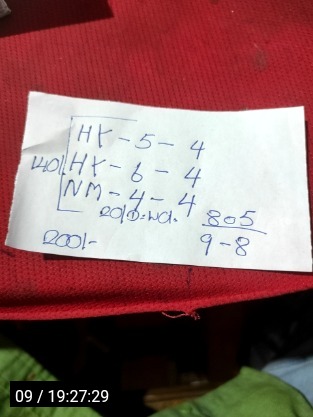 HK - 5 - 4
140/. HK - 6 - 4
NM - 4 - 4
805
200/-
9 - 8
09 / 19:27:29